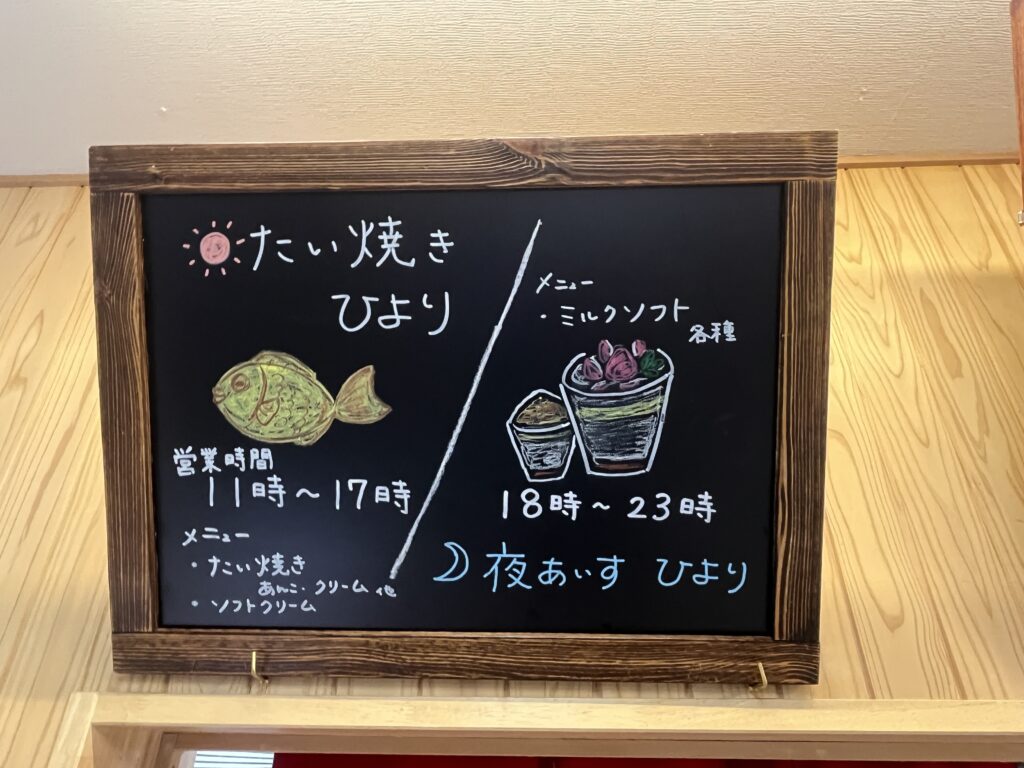 たい焼き
ひより
営業時間
11時～17時
メニュー
・たい焼き
あんこ・クリーム 他
・ソフトクリーム
メニュー
・ミルクソフト
各種
18時～23時
夜あいす ひより